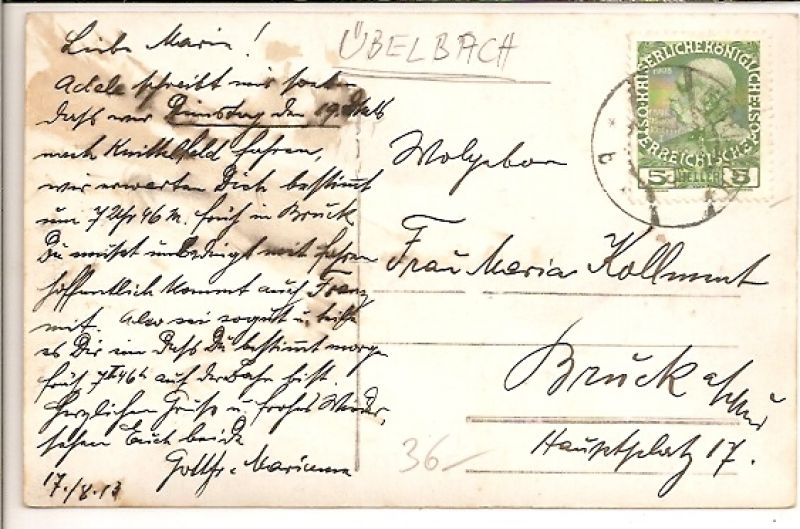 Liebe Marie!
Adele schreibt mir soeben
dass wir Dienstag den 19. d M
nach Knittelfeld fahren,
wir erwarten Dich bestimmt
um 7 Uhr 46 M. früh in Bruck
Du musst unbedingt mit fahren
hoffentlich kommt auch Franz
mit. Also sei so gut u.
es Dir ein dass Du bestimmt morgen
früh 7h 46 auf der Bahn bist.
Herzlichen Gruss u. frohes Wieder,
sehen Euch beide
Gottfr. Marianne
17./8.13
ÜBELBACH
KAISERLICHE KÖNIGLICHE ÖSTERREICHISCHE POST
1908
5 HELLER 5
Wolgebor
Frau Maria Kollmut
Bruck a/Mur
Hauptplatz 17.
36–